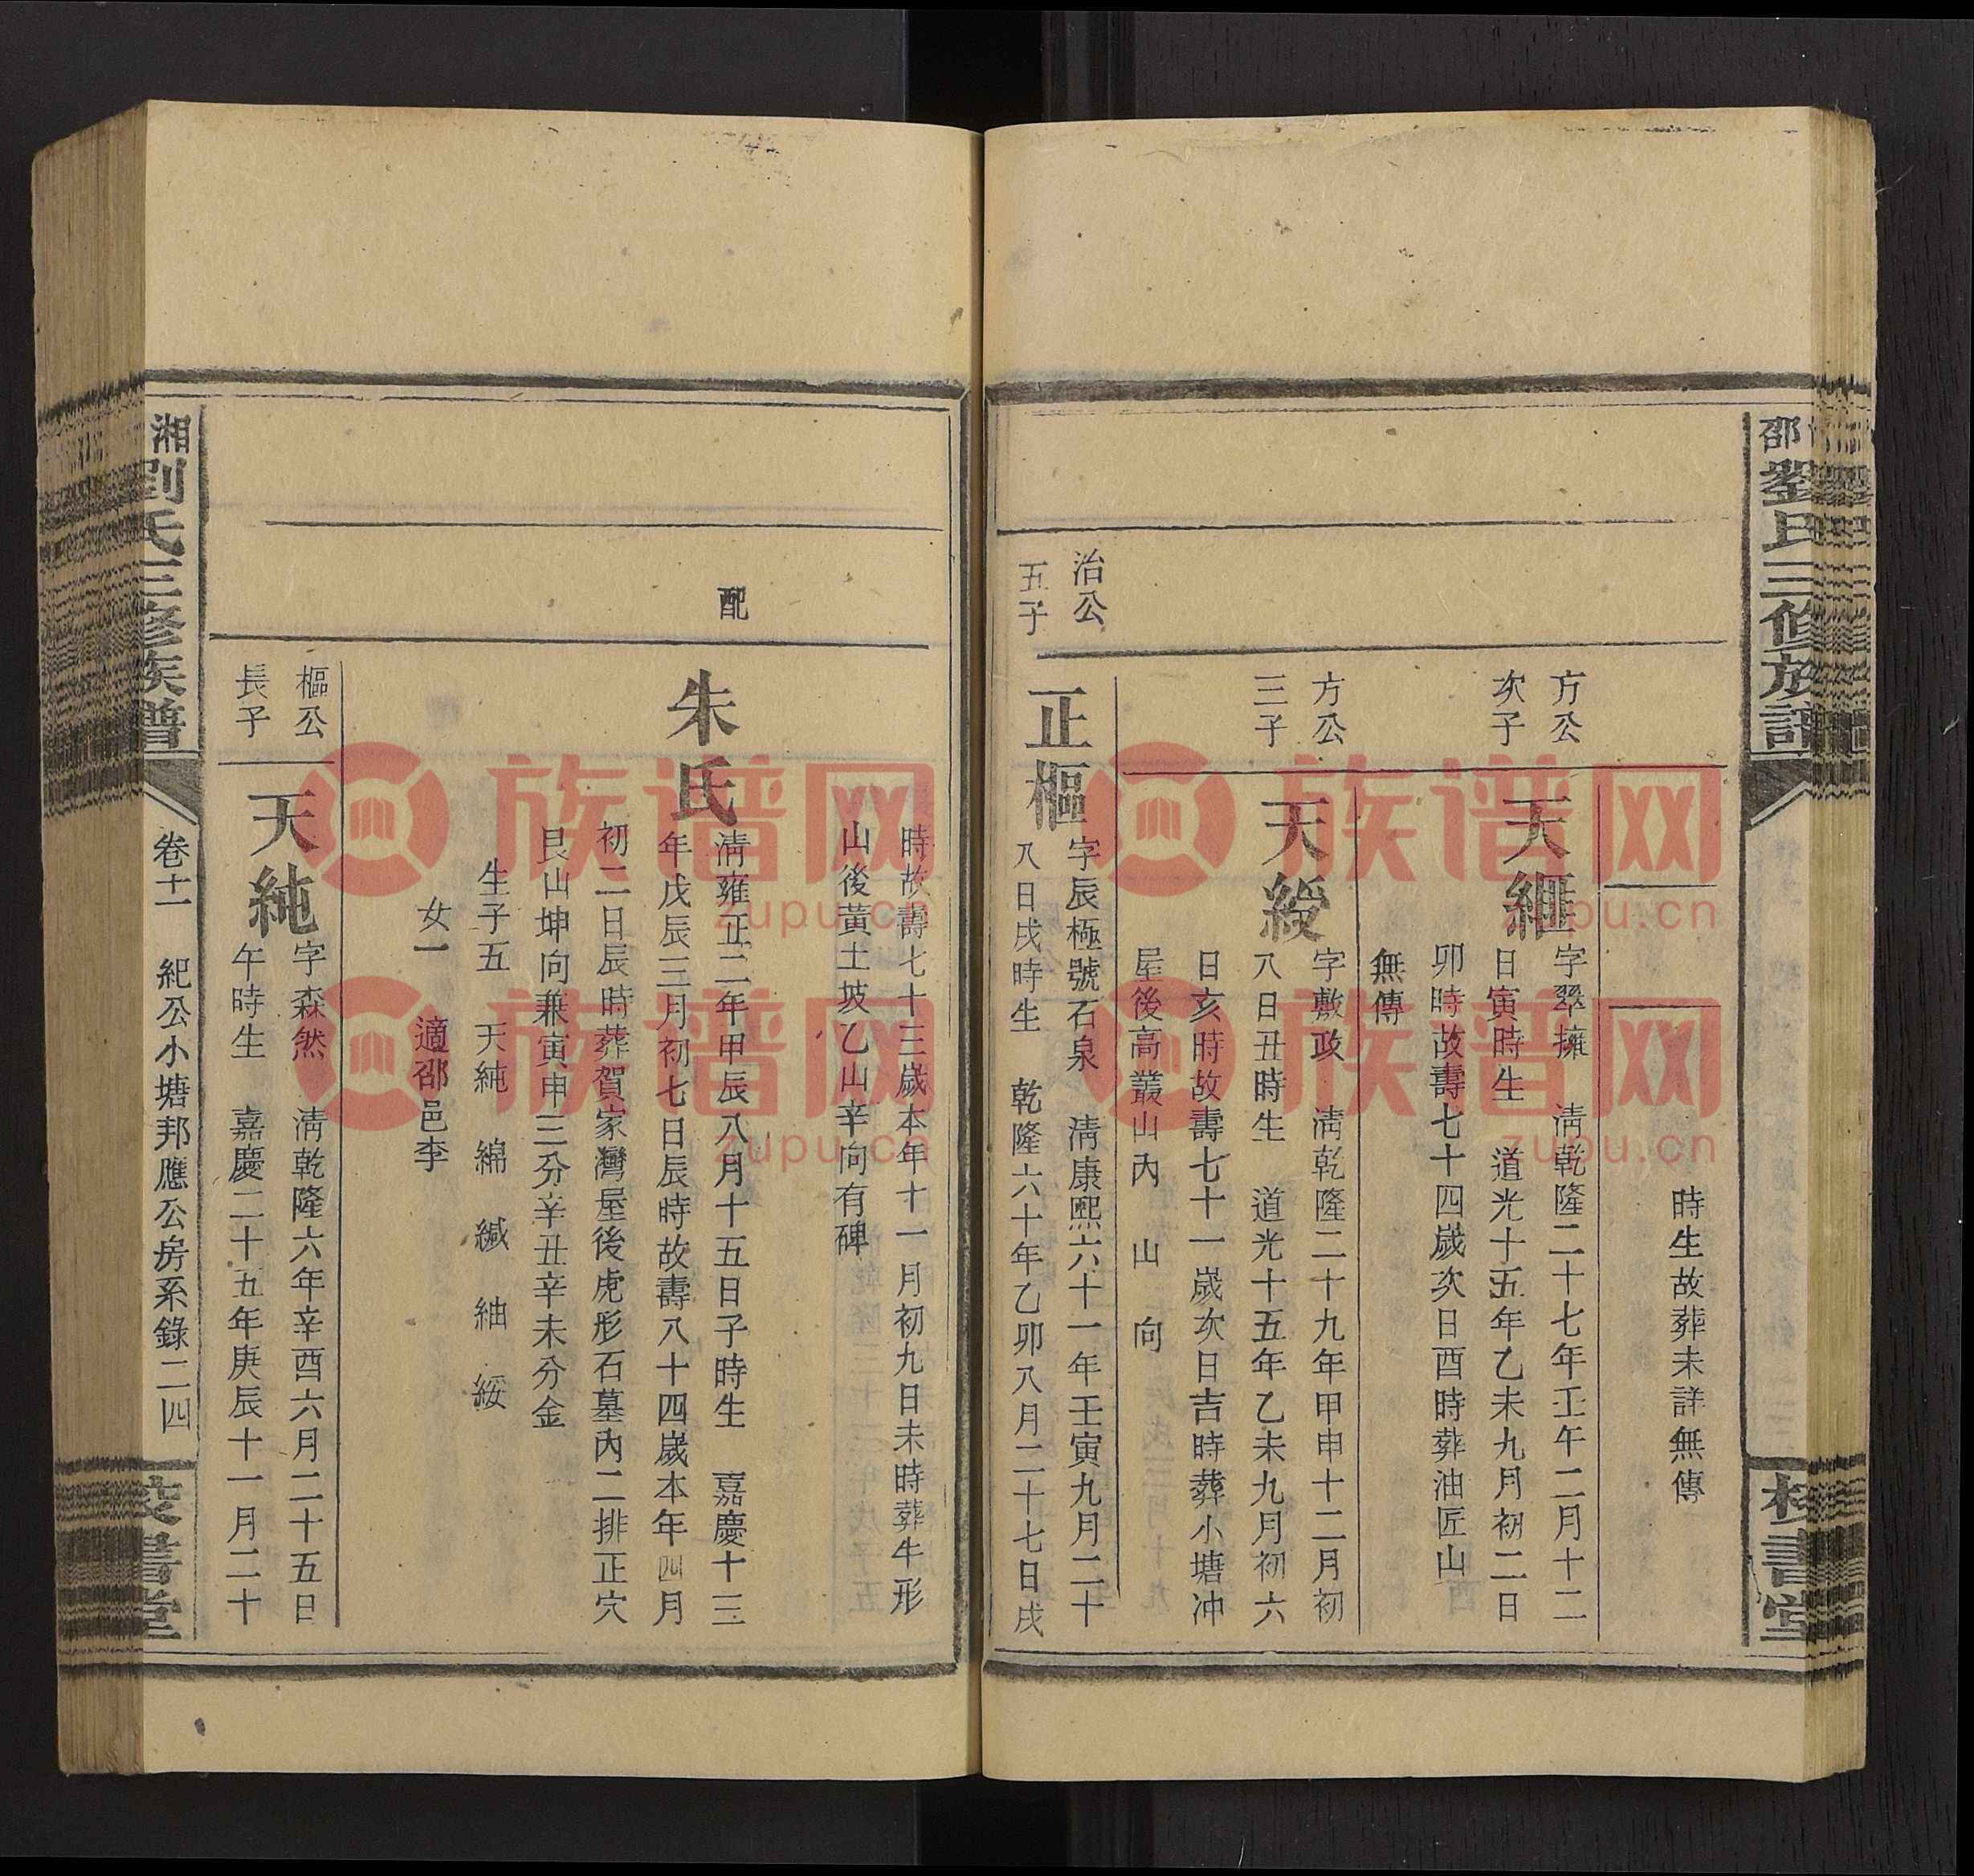 邵
劉氏三修族譜
校書堂
時生故葬未詳無傳
方公
次子
天緟
字翠擁　清乾隆二十七年壬午二月十二
日寅時生　道光十五年乙未九月初二日
卯時故壽七十四歲次日酉時葬油匠山
無傳
方公
三子
天綬
字敷政　清乾隆二十九年甲申十二月初
八日丑時生　道光十五年乙未九月初六
日亥時故壽七十一歲次日吉時葬小塘冲
屋後高叢山內　山　向
治公
五子
正樞
字辰極號石泉　清康熙六十一年壬寅九月二十
八日戌時生　乾隆六十年乙卯八月二十七日戌
時故壽七十三歲本年十一月初九日未時葬牛形
山後黃土坡乙山辛向有碑
配
朱氏
清雍正二年甲辰八月十五日子時生　嘉慶十三
年戊辰三月初七日辰時故壽八十四歲本年四月
初二日辰時葬賀家灣屋後虎形石墓內二排正穴
艮山坤向兼寅申三分辛丑辛未分金
生子五　天純　綿　緘　紬　綏
女一　適邵邑李
樞公
長子
天純
字森然　清乾隆六年辛酉六月二十五日
午時生　嘉慶二十五年庚辰十一月二十
湘
劉氏三修族譜
卷十一　紀公小塘邦應公房系錄二四
校書堂
族谱网　族谱网
zupu.cn　zupu.cn
族谱网　族谱网
zupu.cn　zupu.cn